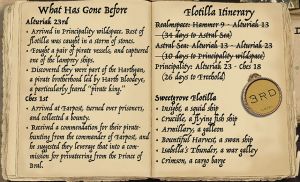 What Has Gone Before
Alturiak 23rd
• Arrived in Principality wildspace. Rest of
flotilla was caught in a storm of stones.
• Fought a pair of pirate vessels, and captured
one of the lamprey ships.
• Discovered they were part of the Harthgan,
a pirate brotherhood led by Harth Bloodeye,
a particularly feared "pirate king."
Ches 1st
• Arrived at Farpost, turned over prisoners,
and collected a bounty.
• Received a commendation for their pirate-
hunting from the commander of Farpost, and
he suggested they leverage that into a com-
mission for privateering from the Prince of
Bral.
Flotilla Itinerary
Realmspace: Hammer 9 - Alturiak 13
(34 days to Astral Sea)
Astral Sea: Alturiak 13 - Alturiak 23
(10 days to Principality wildspace)
Principality: Alturiak 23 - Ches 18
(26 days to Freehold)
Sweetgrove Flotilla
• Insight, a squid ship
• Crucible, a flying fish ship
• Armillary, a galleon
• Bountiful Harvest, a swan ship
• Isabela's Thunder, a war galley
• Crimson, a cargo barge
3RD